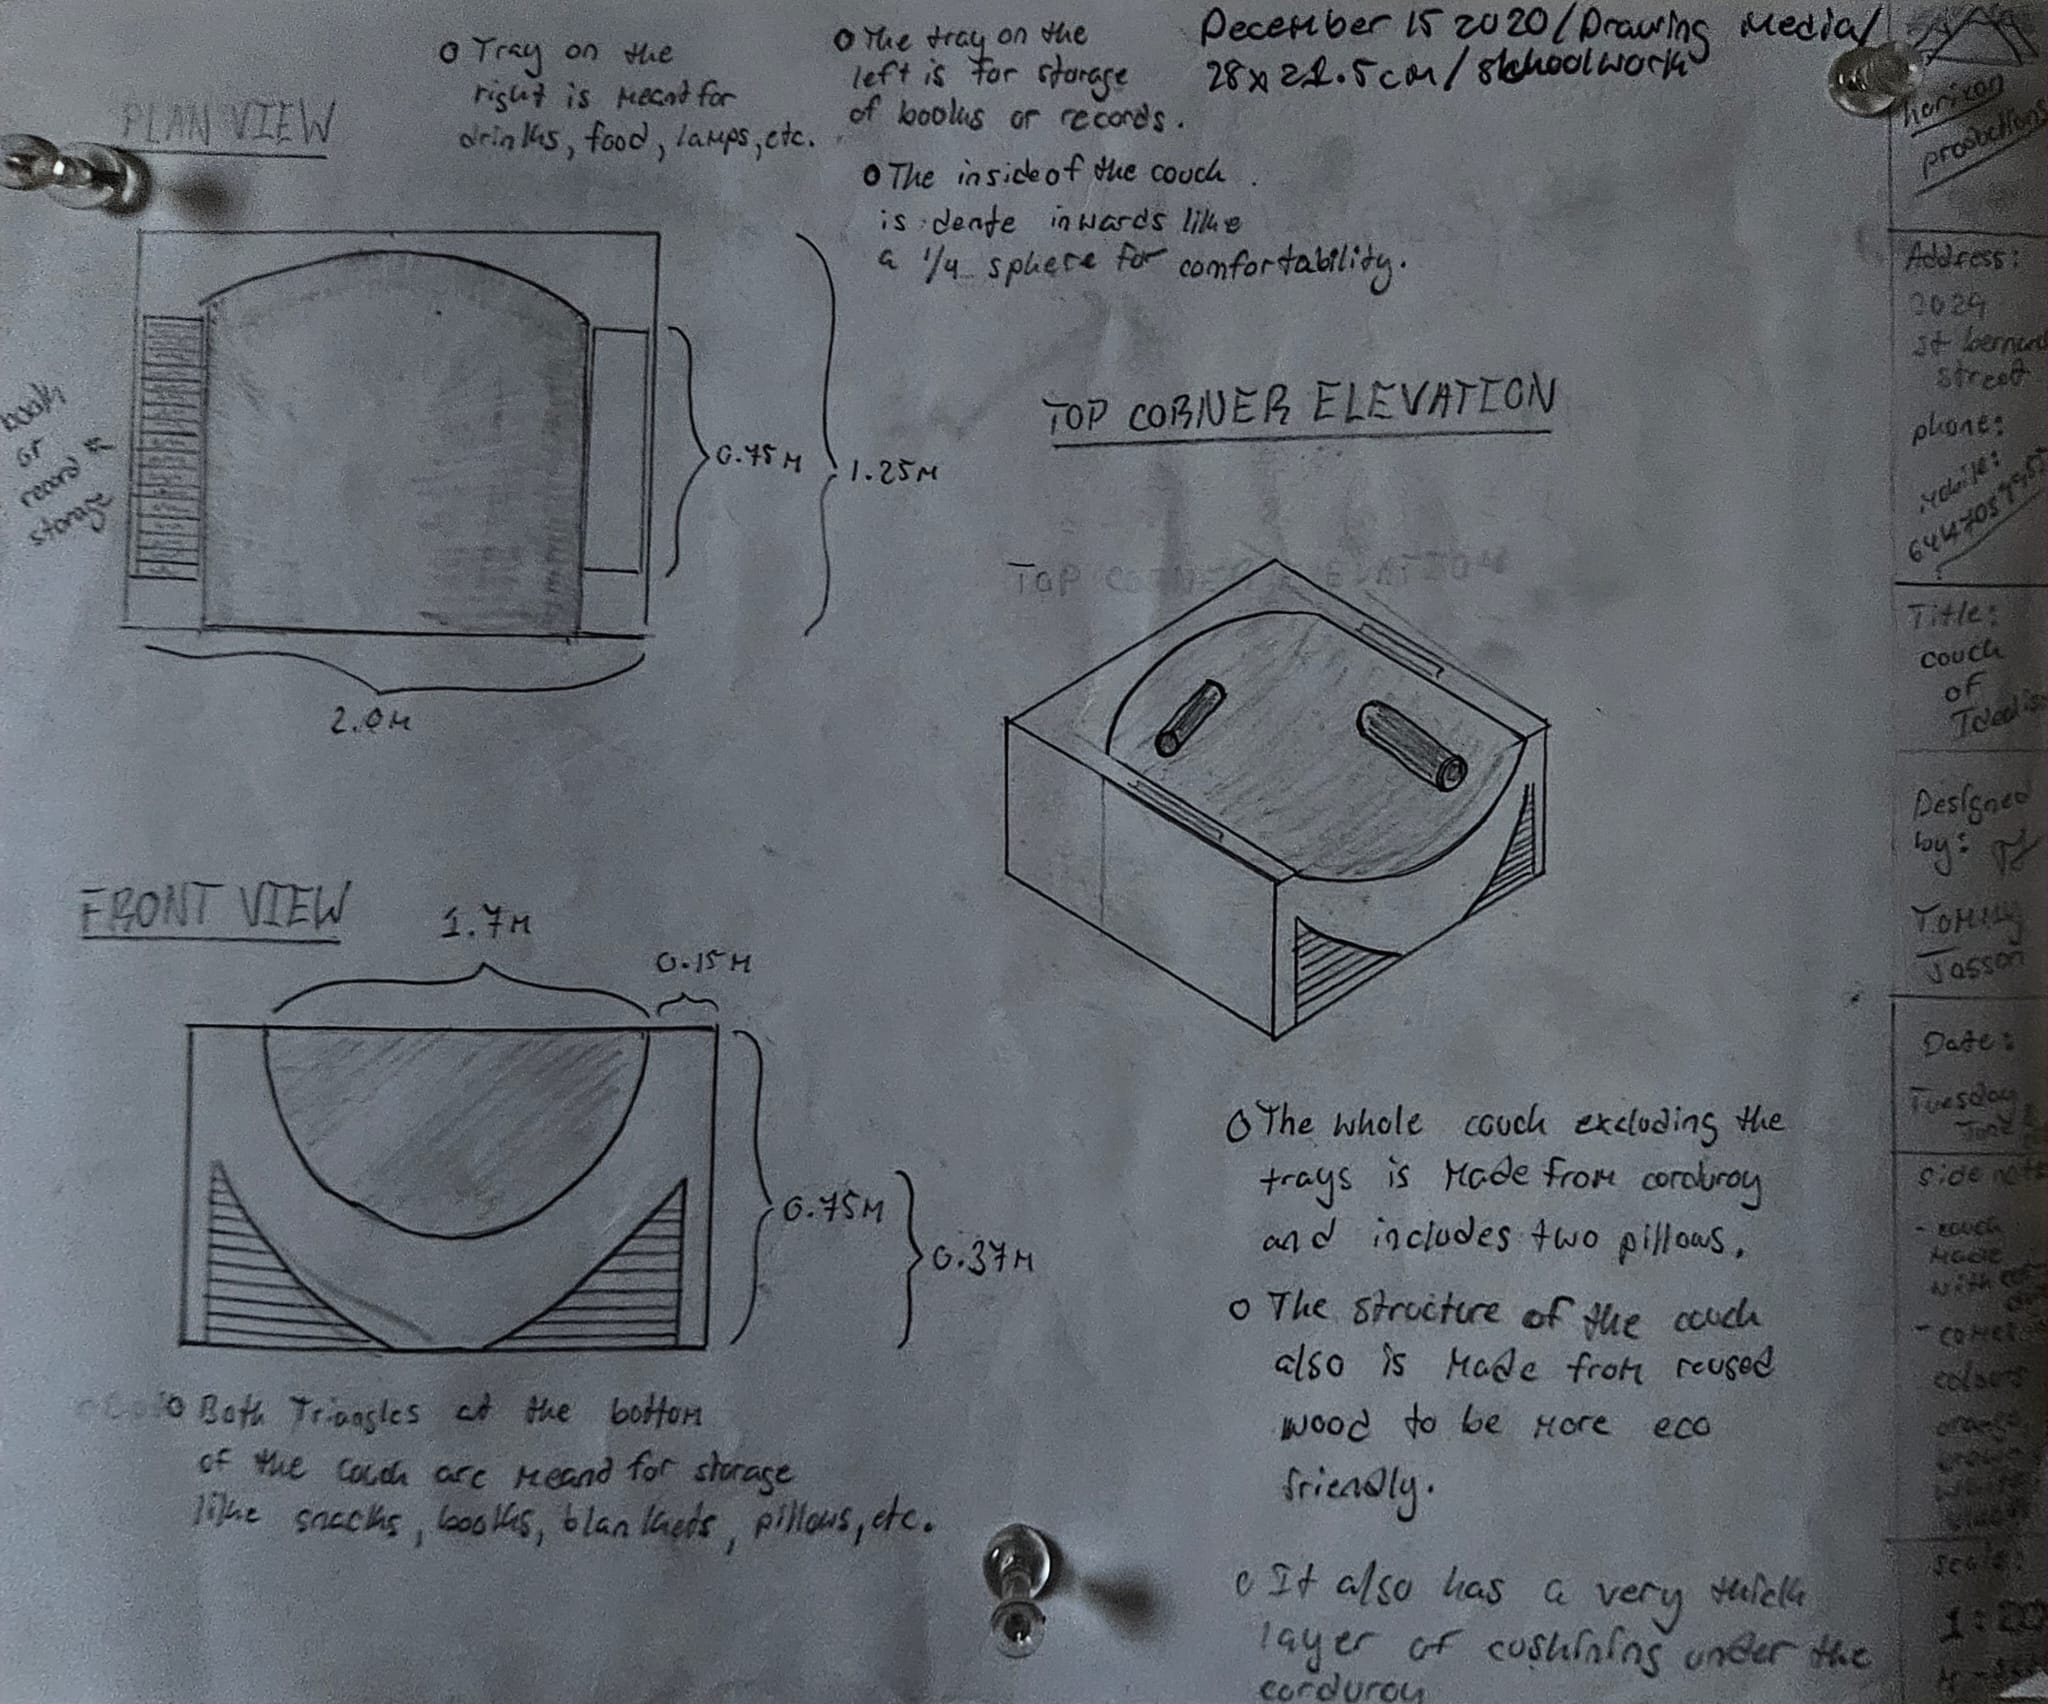 December 15 2020/Drawing Media/
28x21.5cm/schoolwork
PLAN VIEW
o Tray on the
right is meant for
drinks, food, lamps, etc.
o The tray on the
left is for storage
of books or records.
o The inside of the couch
is dente inwards like
a 1/4 sphere for comfortability.
book
or
record
storage
0.75M
1.25M
2.0M
TOP CORNER ELEVATION
TOP CORNER ELEVATION
FRONT VIEW
1.7M
0.15M
0.75M
0.37M
o Both Triangles at the bottom
of the couch are meand for storage
like snacks, books, blankets, pillows, etc.
o The whole couch excluding the
trays is Made from corduroy
and includes two pillows.
o The structure of the couch
also is Made from reused
wood to be more eco
friendly.
o It also has a very thick
layer of cushining under the
corduroy
horizon
productions
Address:
2029
st
street
phone:
Title:
couch
of
Designed
by:
TOMMY
Jasson
Date:
Tuesday
side
- couch
made
with
colours
orange
scale: